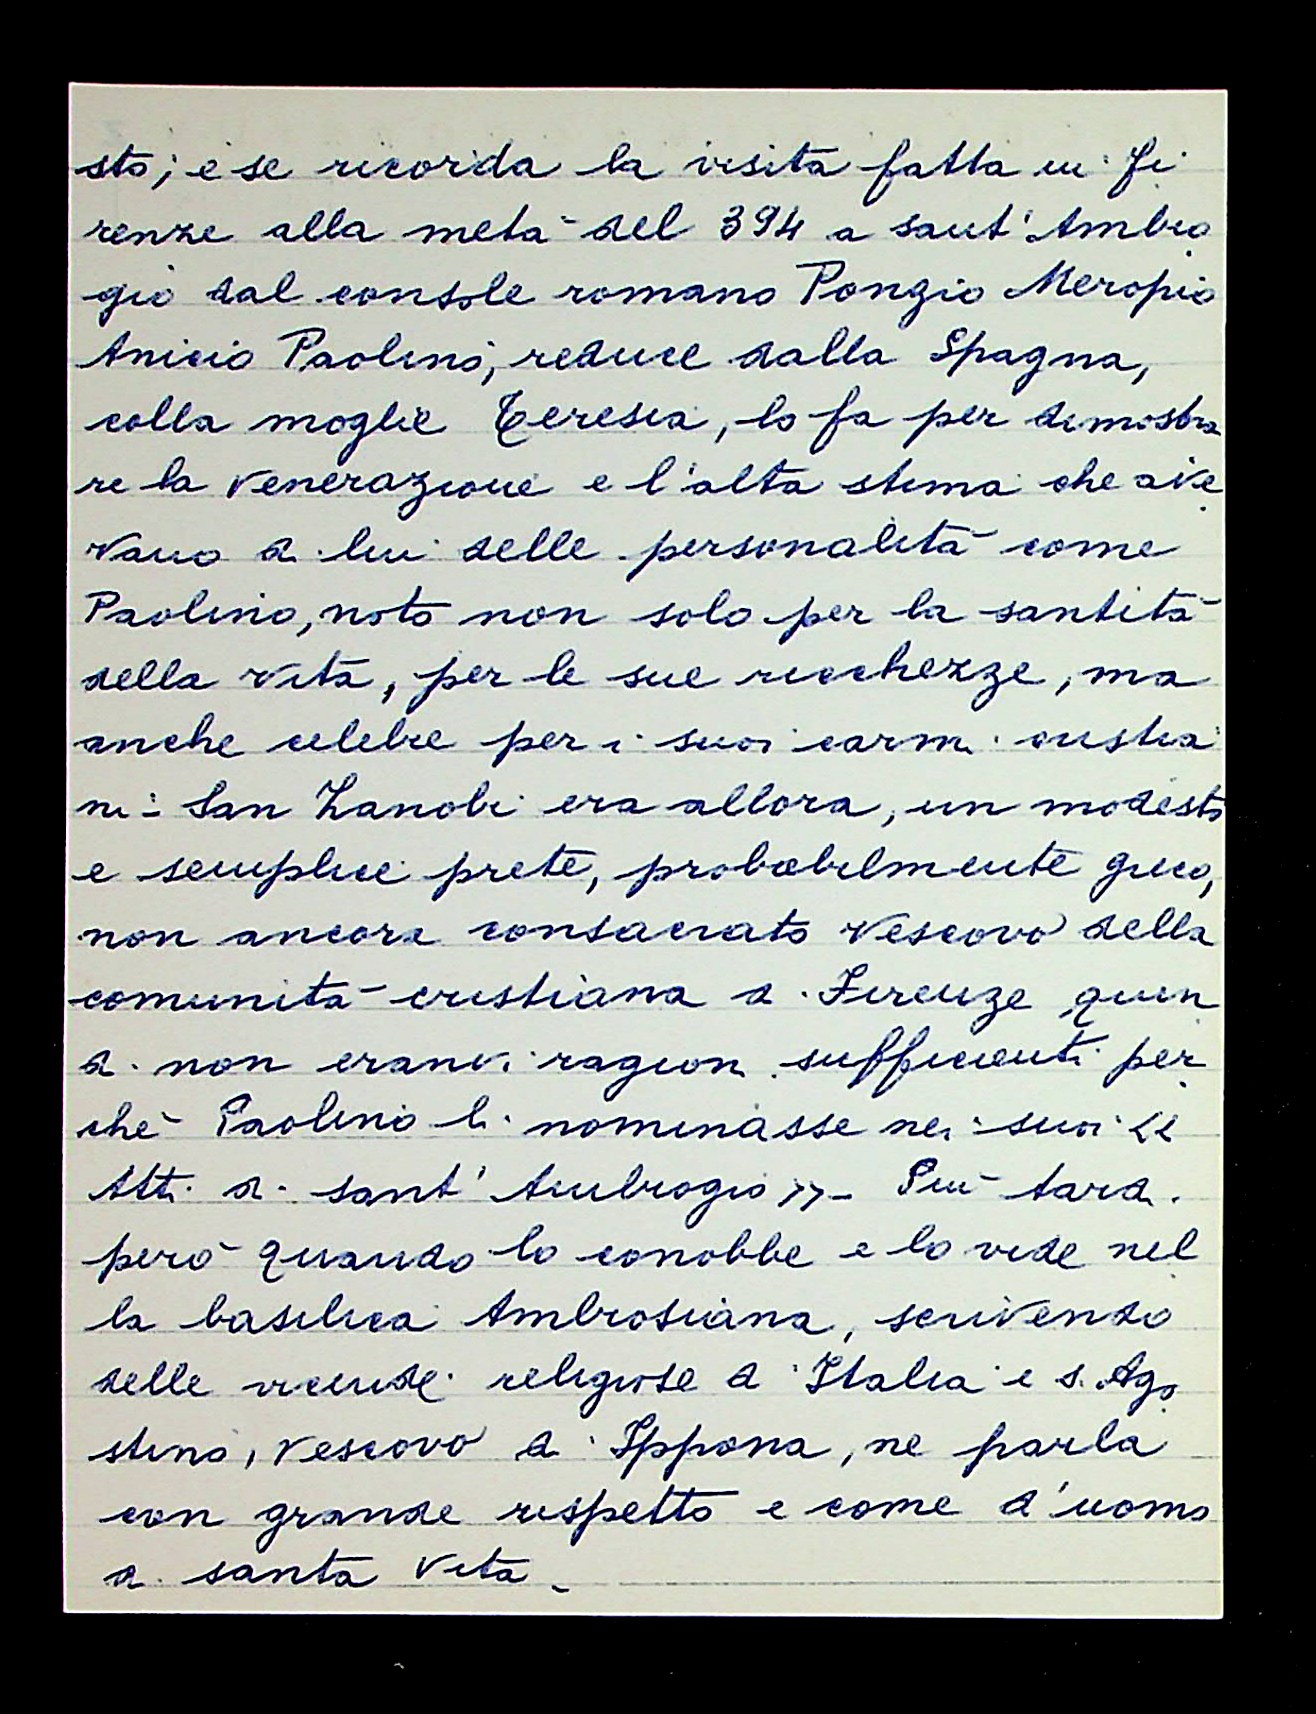 sto; e se ricorda la visita fatta in Fi
renze alla metà del 394 a sant'Ambro
gio dal console romano Ponzio Meropio
Anicio Paolino, reduce dalla Spagna,
colla moglie Teresia, lo fa per dimostra
re la venerazione e l'alta stima che ave
vano di lui delle personalità come
Paolino, noto non solo per la santità
della vita, per le sue ricchezze, ma
anche celebre per i suoi carmi cristia
ni - San Zanobi era allora, un modesto
e semplice prete, probabilmente greco,
non ancora consacrato Vescovo della
comunità cristiana di Firenze quin
di non eranvi ragioni sufficienti per
chè Paolino li nominasse nei suoi <<
Atti di sant'Ambrogio >> - Più tardi
però quando lo conobbe e lo vide nel
la basilica Ambrosiana, scrivendo
delle vicende religiose d'Italia e s. Ago
stino, Vescovo d'Ippona, ne parla
con grande rispetto e come d'uomo
di santa vita -